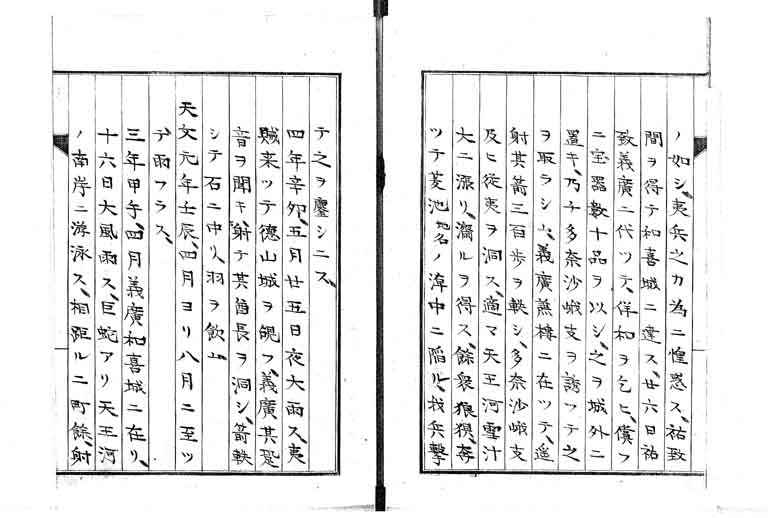 ノ如シ、夷兵之カ為ニ惶惑ス、祐致
間ヲ得テ和喜城ニ達ス、廿六日祐
致義廣ニ代ツテ、佯和ヲ乞ヒ、償フ
ニ宝器數十品ヲ以シ、之ヲ城外ニ
置キ、乃チ多奈沙峨支ヲ誘ツテ之
ヲ取ラシム、義廣譙樓ニ在ツテ、遥
射其箭三百歩ヲ軼シ、多奈沙峨支
及ヒ従夷ヲ洞ス、適マ天王河雪汁
大ニ漲リ、濟ルヲ得ス、餘衆狼狽、奔
ツテ菱池地名ノ渟中ニ陥ル、我兵撃
テ之ヲ鏖シニス、
四年辛卯、五月廿五日夜大雨ス、夷
賊来ツテ徳山城ヲ覘フ、義廣其跫
音ヲ聞キ、射テ其酋長ヲ洞シ、箭軼
シテ石ニ中リ、羽ヲ飲ム
天文元年壬辰、四月ヨリ八月ニ至ツ
テ雨フラス、
三年甲午、四月義廣和喜城ニ在リ、
十六日大風雨ス、巨蛇アリ天王河
ノ南岸ニ游泳ス、相距ルニ町餘、射